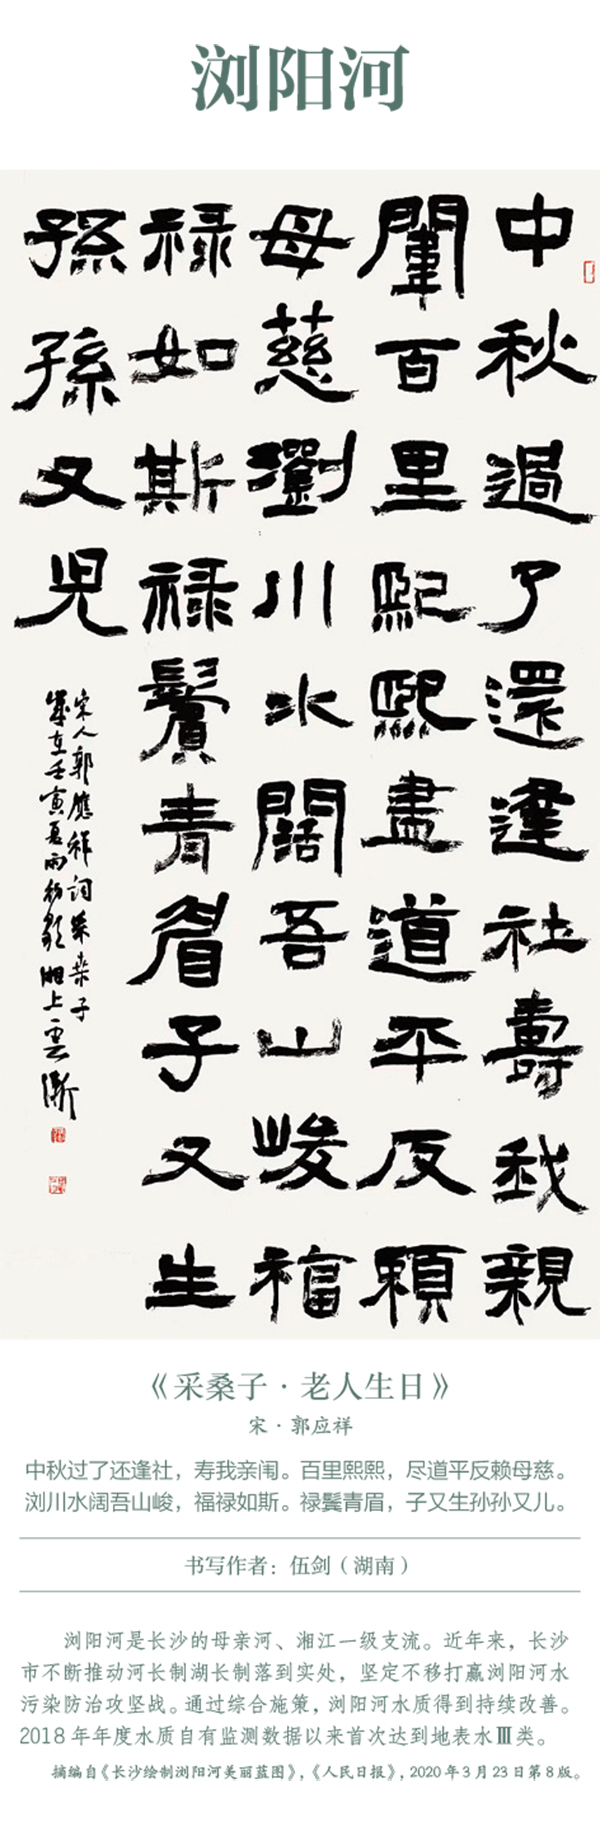 浏阳河
中秋過了還逢社壽我親
闈百里熙熙盡道平反賴
母慈瀏川水闊吾山峻福
禄如斯禄鬢青眉子又生
孫孫又児
宋人郭應祥詞采桑子
歲在壬寅夏雨
湘上
《采桑子·老人生日》
宋·郭应祥
中秋过了还逢社，寿我亲闱。百里熙熙，尽道平反赖母慈。
浏川水阔吾山峻，福禄如斯。禄鬓青眉，子又生孙孙又儿。
书写作者：伍剑（湖南）
浏阳河是长沙的母亲河、湘江一级支流。近年来，长沙
市不断推动河长制湖长制落到实处，坚定不移打赢浏阳河水
污染防治攻坚战。通过综合施策，浏阳河水质得到持续改善。
2018 年年度水质自有监测数据以来首次达到地表水Ⅲ类。
摘编自《长沙绘制浏阳河美丽蓝图》，《人民日报》，2020 年 3 月 23 日第 8 版。